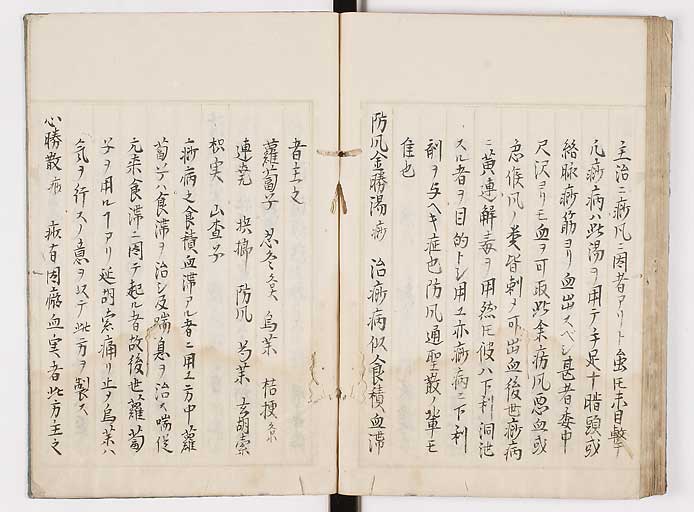 主治ニ痧風ニ因者アリト虽𪜈未目擊
凡痧病ハ此湯ヲ用テ手足十指頭或
絡脉痧筋ヨリ血出スベシ甚者委中
尺沢ヨリモ血ヲ可取此余痧風悪血或
急喉風ノ類皆刺メ可出血後世痧病
ニ黄連解毒ヲ用然𪜈彼ハ下利洞泄
スル者ヲ目的トシ用ユ亦痧病ニ下利
剤ヲ与ヘキ症也防風通聖散ノ輩モ
佳也
防風金勝湯 痧 治痧病似食積血滞
者主之
蘿蔔子 忍冬 烏薬 桔梗
連堯 槟榔 防風 芍薬 玄胡索
枳実 山査子
痧病之食積血滞アル者ニ用ユ方中蘿
蔔子ハ食滞ヲ治シ及喘息ヲ治ス喘促
元来食滞ニ因テ起ル者故後世蘿蔔
子ヲ用ルヿアリ延胡索痛ヲ止ヲ烏薬ハ
気ヲ行スノ意ヲ以テ此方ヲ製ス
必勝散 痧 痧有因瘀血実者此方主之